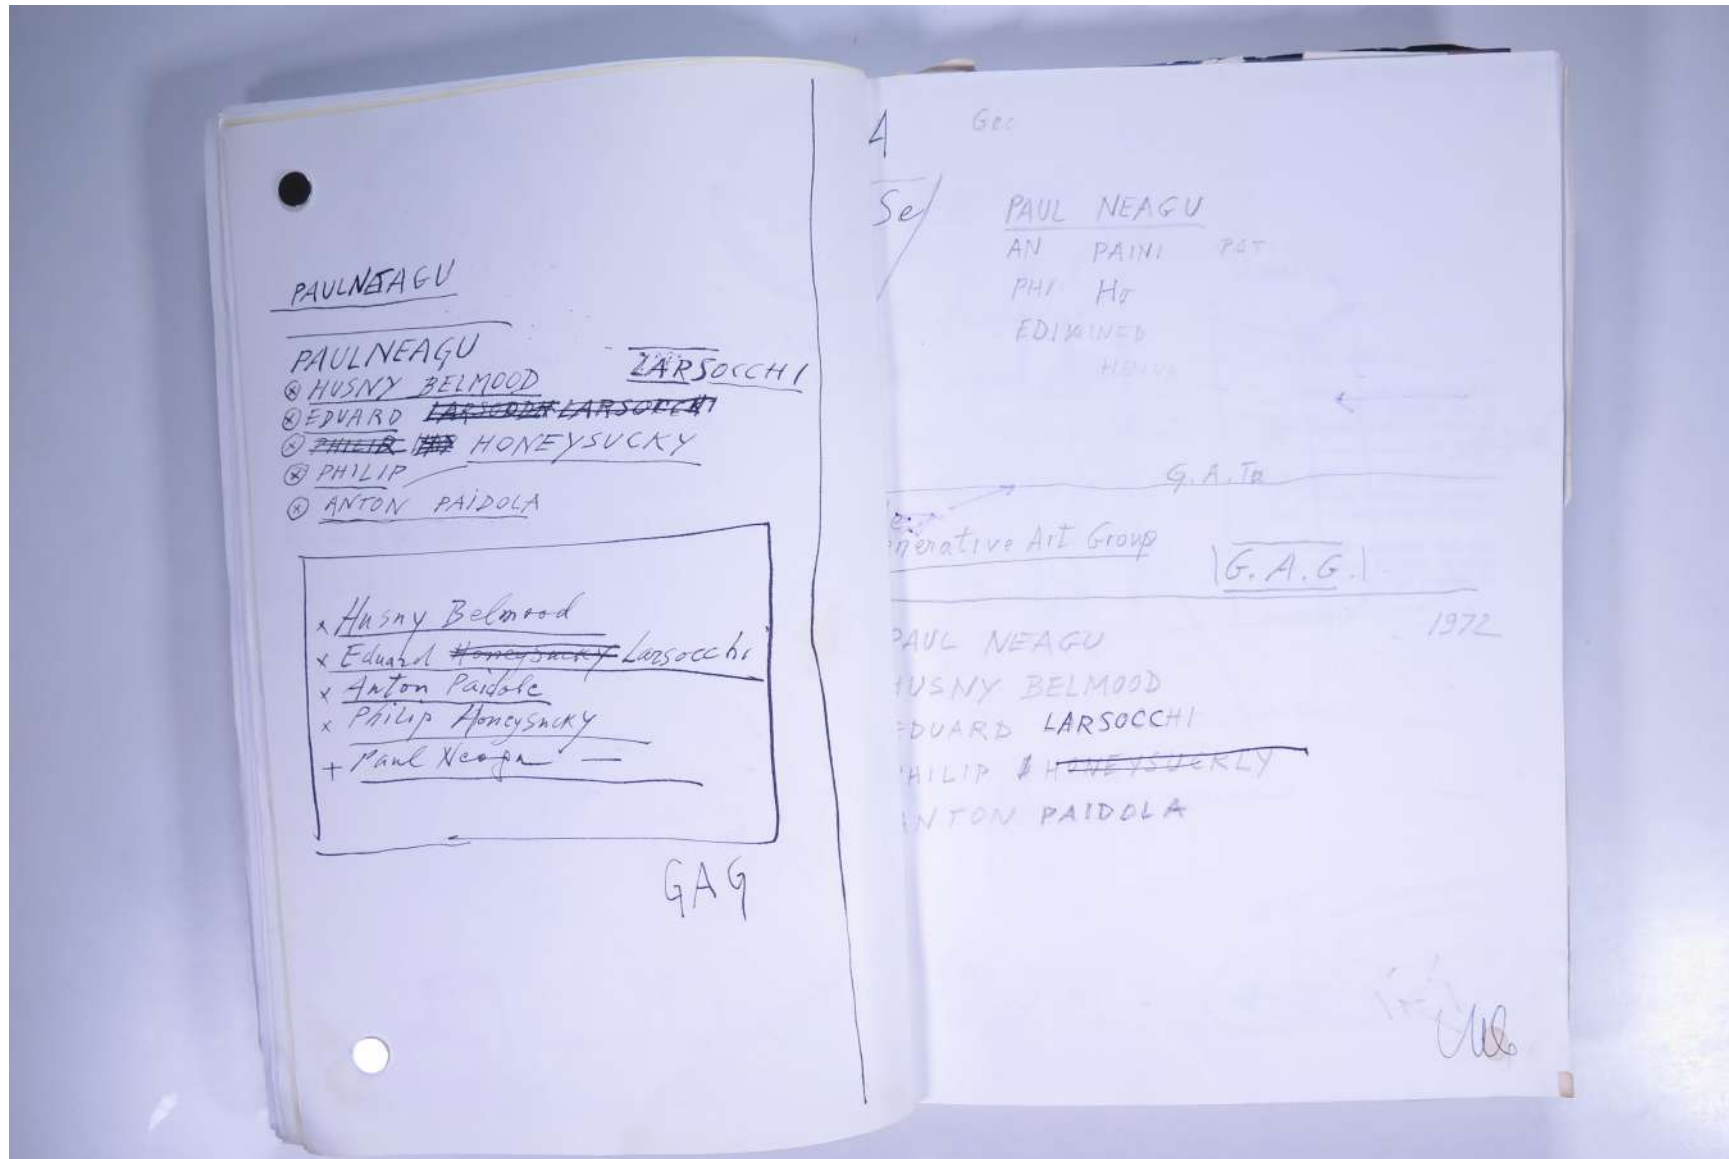 PAULNEAGU
PAULNEAGU
HUSNY BELMOOD
LARSOCCHI
EDUARD LARSOCCHI
PHILIP HONEYSUCKY
PHILIP
ANTON PAIDOLA
x Husny Belmood
x Eduard Honeysucky Larsocchi
x Anton Paidole
x Philip Honeysucky
+ Paul Neagu —
GAG
Se
PAUL NEAGU
AN PAINI
PHI Ho
G.A.
nerative Art Group
G.A.G.
1972
PAUL NEAGU
HUSNY BELMOOD
EDUARD LARSOCCHI
PHILIP HONEYSUCKLY
ANTON PAIDOLA